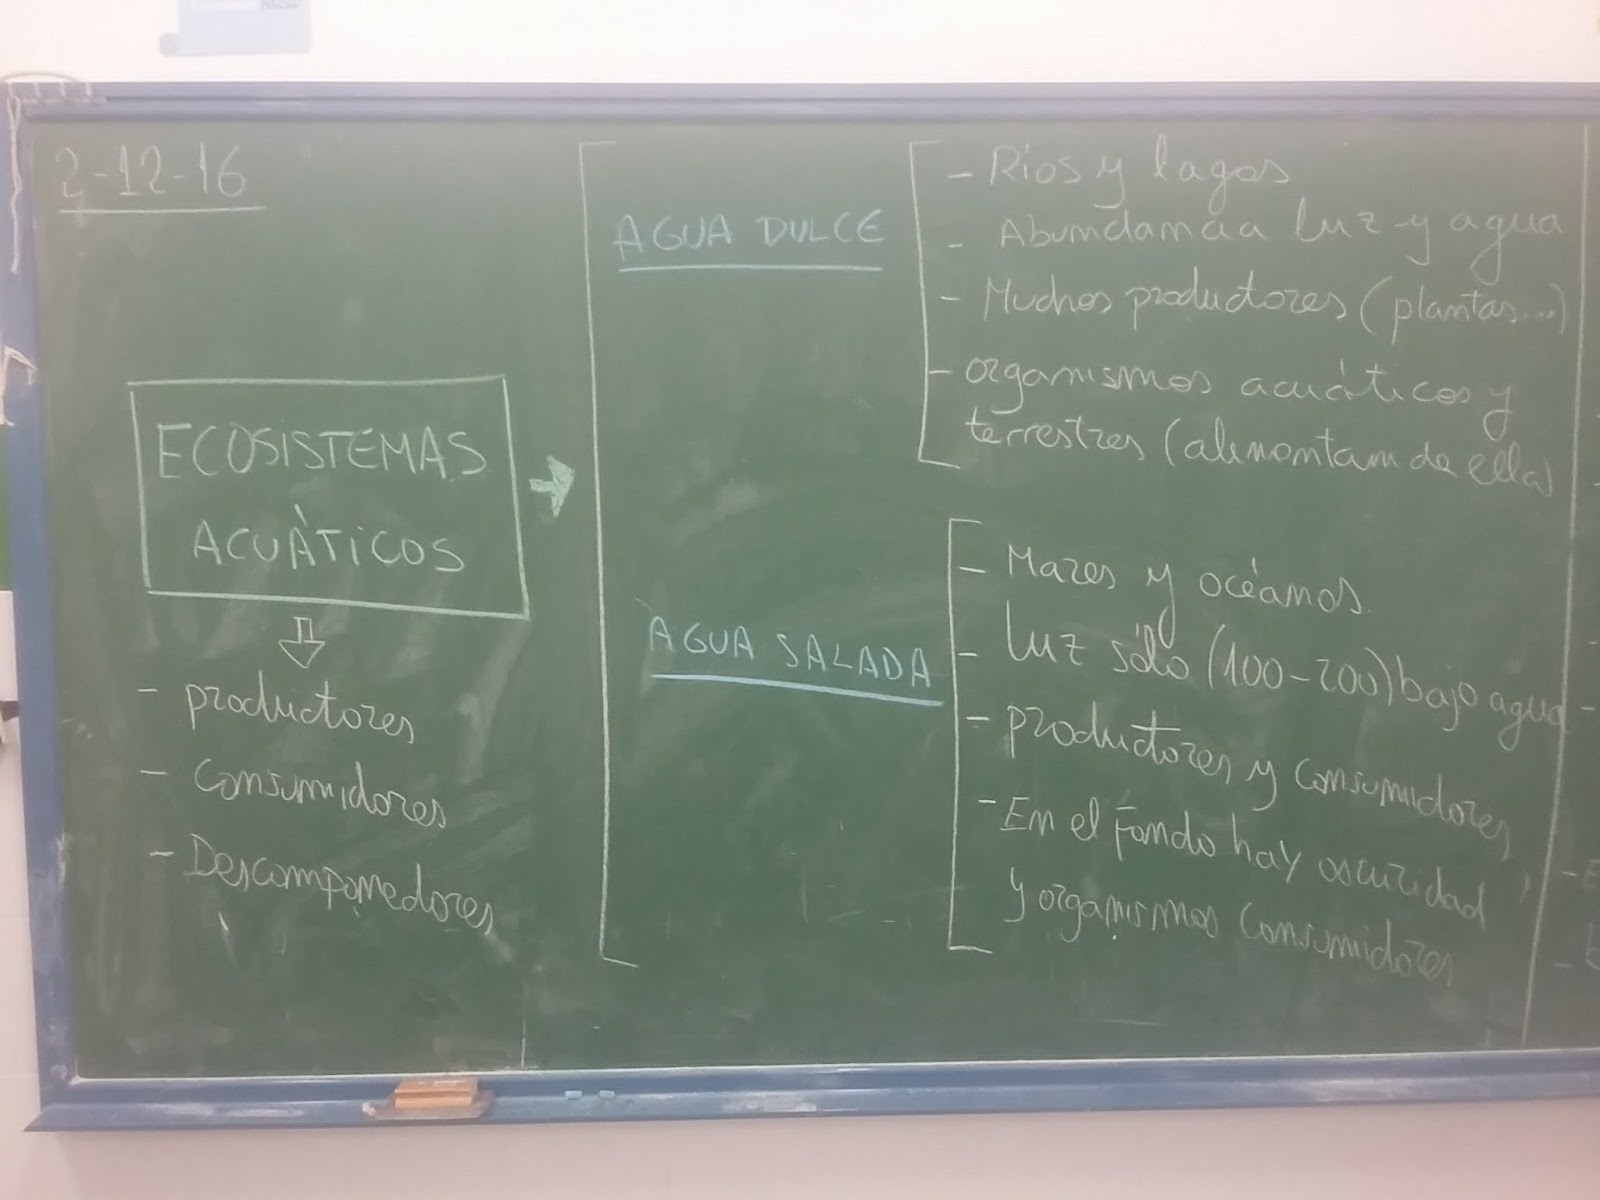 2-12-16
ECOSISTEMAS
ACUÁTICOS
- productores
- Consumidores
- Descomponedores
AGUA DULCE
- Ríos y lagos
- Abundancia luz y agua
- Muchos productores (plantas...)
- organismos acuáticos y
terrestres (alimentan de ella)
AGUA SALADA
- Mares y océanos.
- Luz sólo (100-200) bajo agua
- productores y consumidores
- En el fondo hay oscuridad
y organismos consumidores